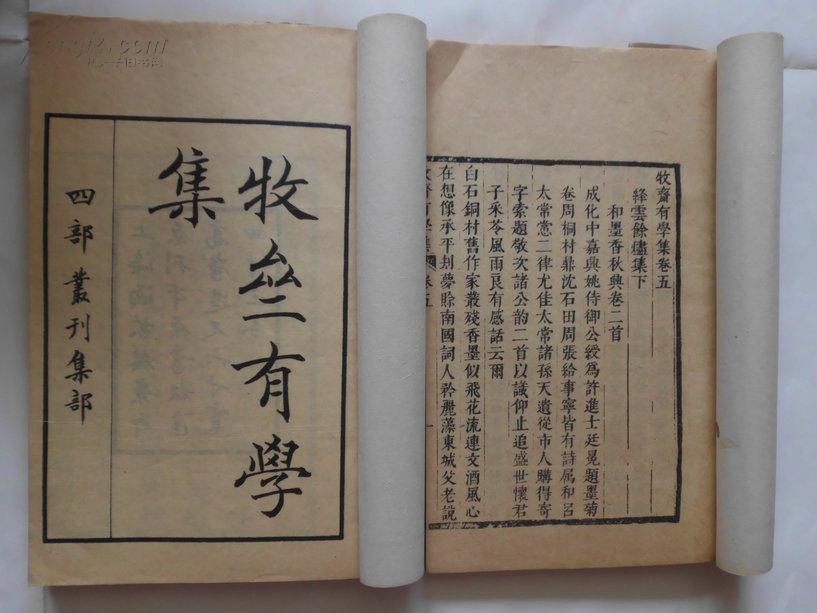 牧亝有學
集
四部叢刊集部
牧齋有學集卷五
絳雲餘燼集下
和墨香秋興卷二首
成化中嘉興姚侍御公綬爲許進士廷冕題墨菊
卷周桐村鼎沈石田周張給事寧皆有詩属和呂
太常㦂二律尤佳太常諸孫天遺從市人購得寄
字索題敬次諸公韵二首以識仰止追盛世懷君
子采苓風雨良有感話云爾
白石銅村舊作家叢殘香墨似飛花流連文酒風心
在想像承平刦夢賒南國詞人矜麗藻東城父老說